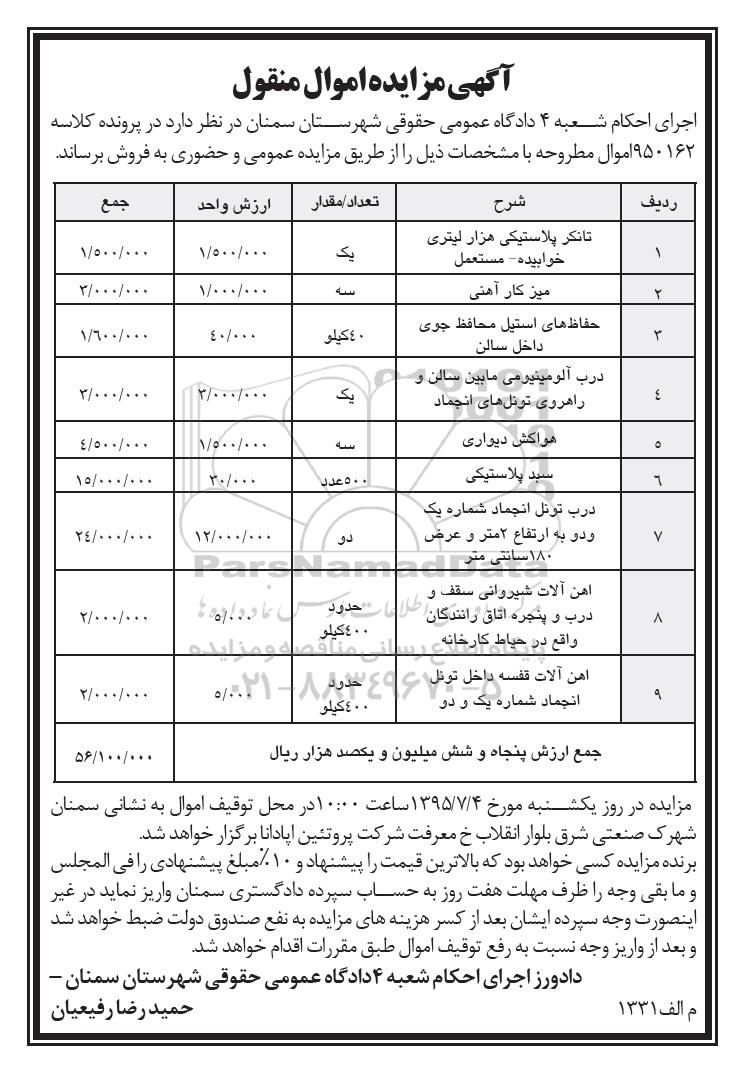 آگهی مزایده اموال منقول
اجرای احکام شعبه ۴ دادگاه عمومی حقوقی شهرستان سمنان در نظر دارد در پرونده کلاسه
۹۵۰۱۶۲اموال مطروحه با مشخصات ذیل را از طریق مزایده عمومی و حضوری به فروش برساند.
ردیف شرح تعداد/مقدار ارزش واحد جمع
۱ تانکر پلاستیکی هزار لیتری خوابیده- مستعمل یک ۱/۵۰۰/۰۰۰ ۱/۵۰۰/۰۰۰
۲ میز کار آهنی سه ۱/۰۰۰/۰۰۰ ۳/۰۰۰/۰۰۰
۳ حفاظ‌های استیل محافظ جوی داخل سالن ۴۰کیلو ۴۰/۰۰۰ ۱/۶۰۰/۰۰۰
۴ درب آلومینیومی مابین سالن و راهروی تونل‌های انجماد یک ۳/۰۰۰/۰۰۰ ۳/۰۰۰/۰۰۰
۵ هواکش دیواری سه ۱/۵۰۰/۰۰۰ ۴/۵۰۰/۰۰۰
۶ سبد پلاستیکی ۵۰۰عدد ۳۰/۰۰۰ ۱۵/۰۰۰/۰۰۰
۷ درب تونل انجماد شماره یک ودو به ارتفاع ۲متر و عرض ۱۸۰سانتی متر دو ۱۲/۰۰۰/۰۰۰ ۲۴/۰۰۰/۰۰۰
۸ اهن آلات شیروانی سقف و درب و پنجره اتاق رانندگان واقع در حیاط کارخانه حدود ۴۰۰کیلو ۵/۰۰۰ ۲/۰۰۰/۰۰۰
۹ اهن آلات قفسه داخل تونل انجماد شماره یک و دو حدود ۴۰۰کیلو ۵/۰۰۰ ۲/۰۰۰/۰۰۰
جمع ارزش پنجاه و شش میلیون و یکصد هزار ریال ۵۶/۱۰۰/۰۰۰
ParsNamadData
پایگاه اطلاع رسانی مناقصه و مزایده
۰۲۱-۸۸۳۴۹۶۷۰-۵
مزایده در روز یکشنبه مورخ ۱۳۹۵/۷/۴ساعت ۱۰:۰۰در محل توقیف اموال به نشانی سمنان
شهرک صنعتی شرق بلوار انقلاب خ معرفت شرکت پروتئین اپادانا برگزار خواهد شد.
برنده مزایده کسی خواهد بود که بالاترین قیمت را پیشنهاد و ۱۰٪مبلغ پیشنهادی را فی المجلس
و ما بقی وجه را ظرف مهلت هفت روز به حساب سپرده دادگستری سمنان واریز نماید در غیر
اینصورت وجه سپرده ایشان بعد از کسر هزینه های مزایده به نفع صندوق دولت ضبط خواهد شد
و بعد از واریز وجه نسبت به رفع توقیف اموال طبق مقررات اقدام خواهد شد.
دادورز اجرای احکام شعبه ۴دادگاه عمومی حقوقی شهرستان سمنان –
حمید رضا رفیعیان
م الف۱۳۳۱